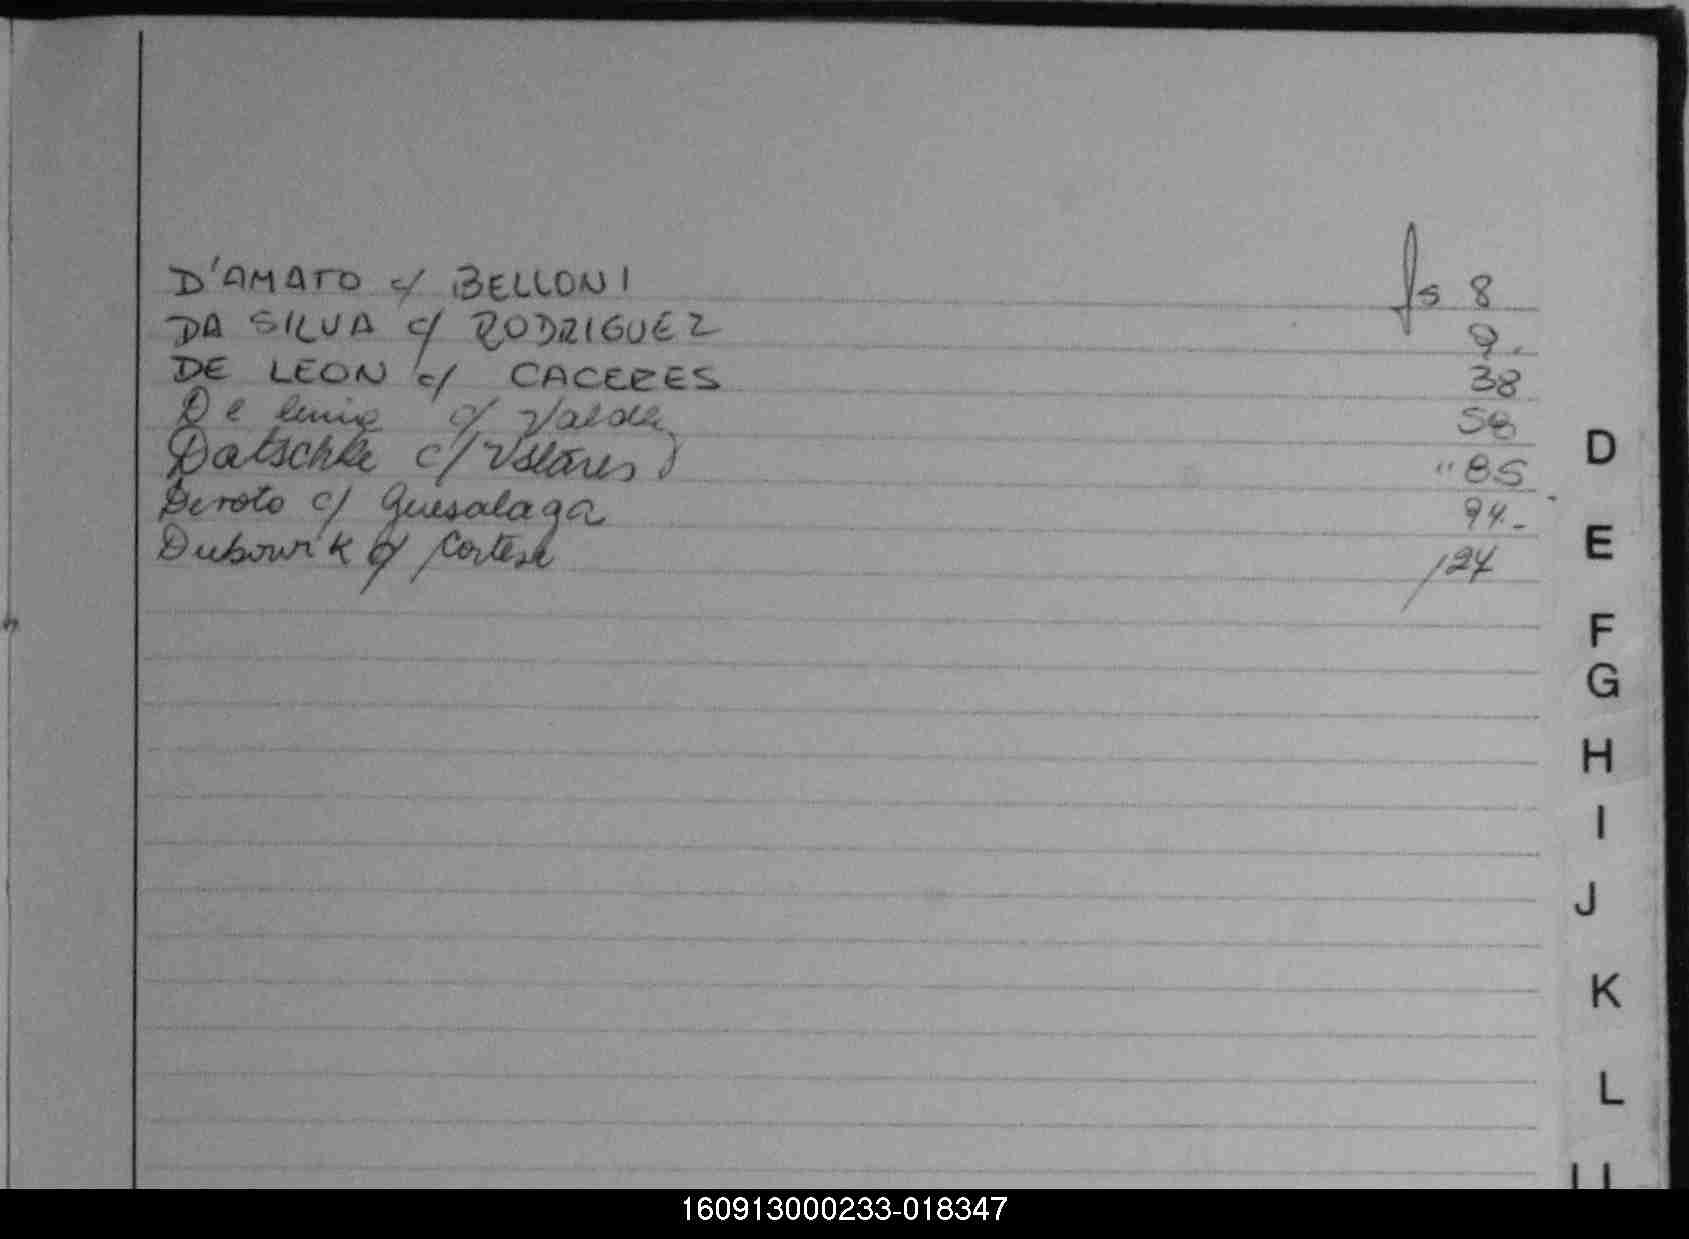 D'AMATO c/ BELLONI fs 8
DA SILVA c/ RODRIGUEZ 9.
DE LEON c/ CACERES 38
De c/ 58
Datschke c/ " 85
Deroto c/ Guesalaga 94.-
Dubowik c/ Cortese 124
D
E
F
G
H
I
J
K
L
160913000233-018347